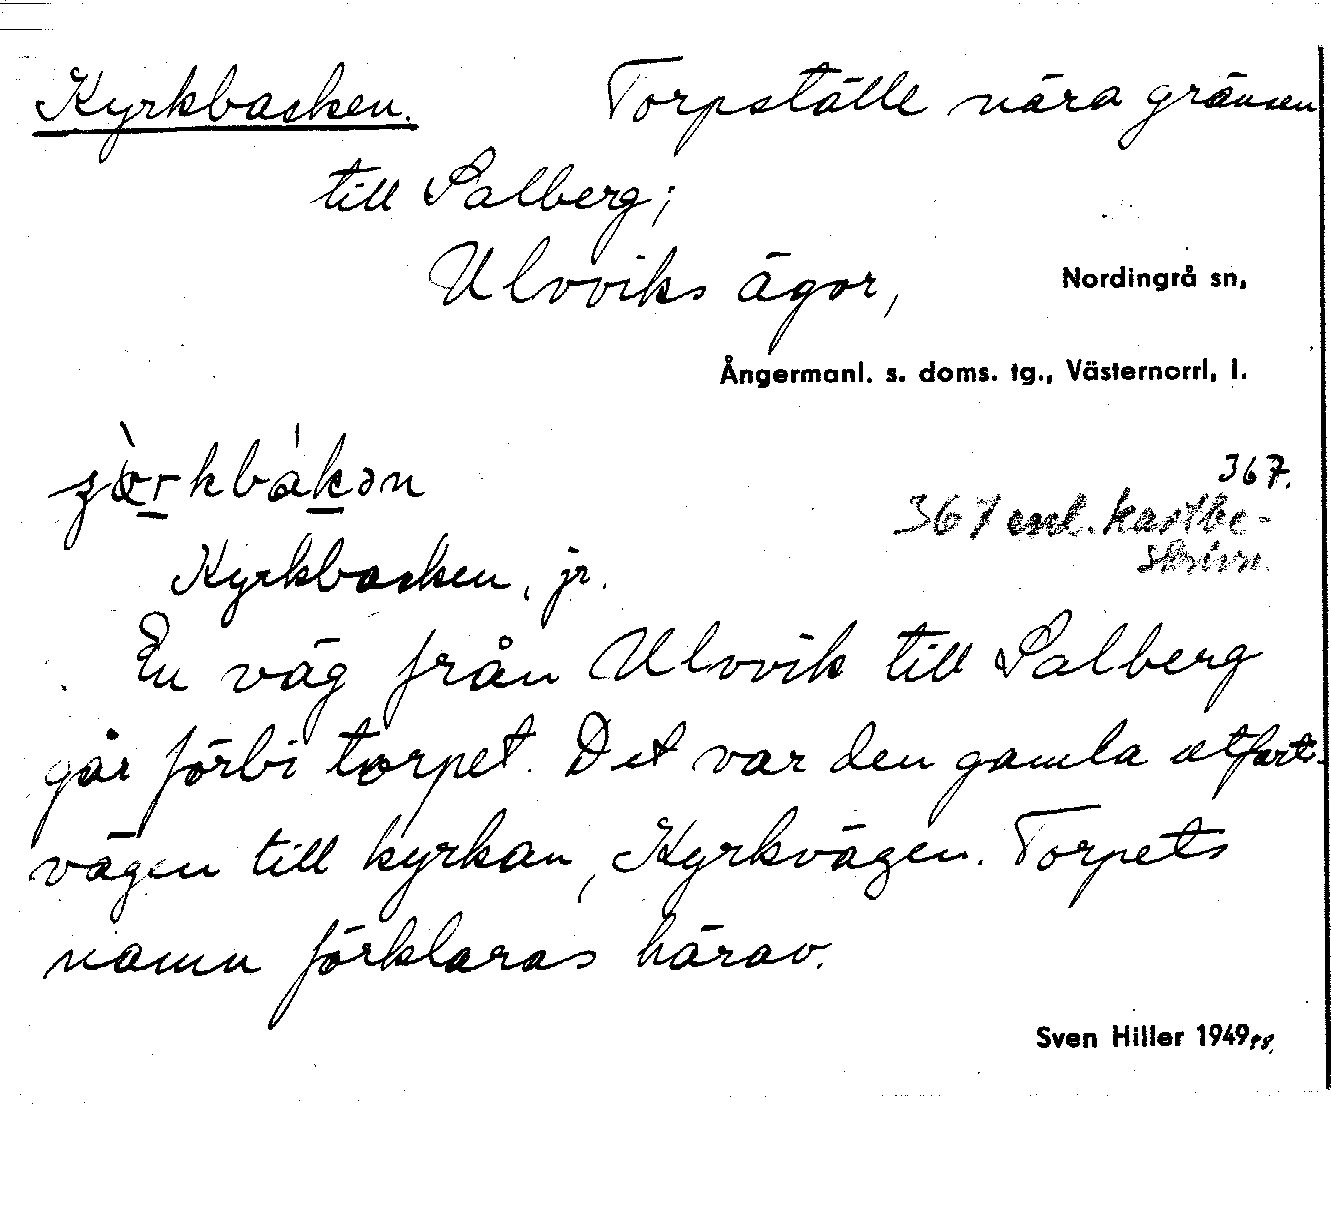 Kyrkbacken. Torpställe nära gränsen
till Salberg;
Ulvviks ägor, Nordingrå sn,
Ångermanl. s. doms. tg., Västernorrl, l.
367.
367 enl. kartbe-
skrivn.
Kyrkbacken, jr.
En väg från Ulvvik till Salberg
går förbi torpet. Det var den gamla utfarts-
vägen till kyrkan, Kyrkvägen. Torpets
namn förklaras härav.
Sven Hiller 1949